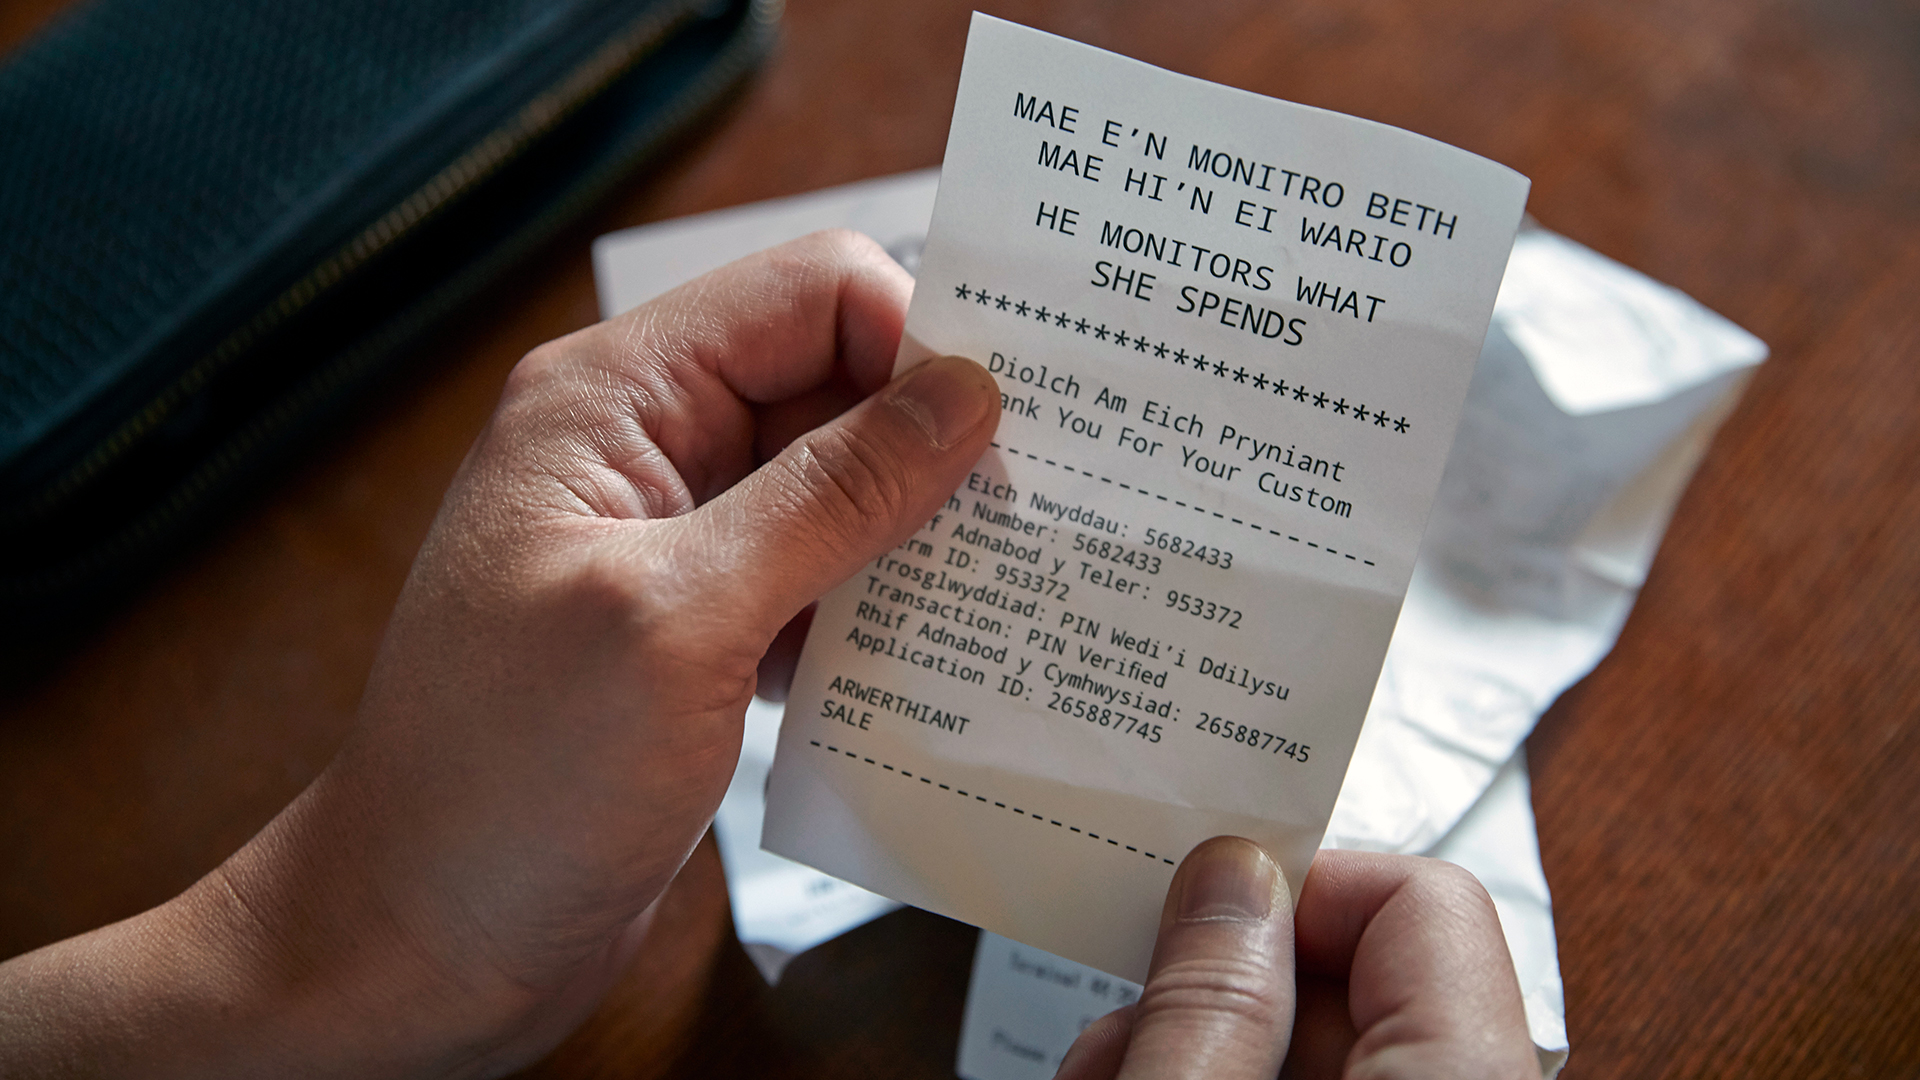 MAE E'N MONITRO BETH
MAE HI'N EI WARIO
HE MONITORS WHAT
SHE SPENDS
**********************
Diolch Am Eich Pryniant
You For Your Custom
--------------------
Eich Nwyddau: 5682433
Number: 5682433
Adnabod y Teler: 953372
ID: 953372
Trosglwyddiad: PIN Wedi'i Ddilysu
Transaction: PIN Verified
Rhif Adnabod y Cymhwysiad: 265887745
Application ID: 265887745
ARWERTHIANT
SALE
--------------------
Terminal
Please